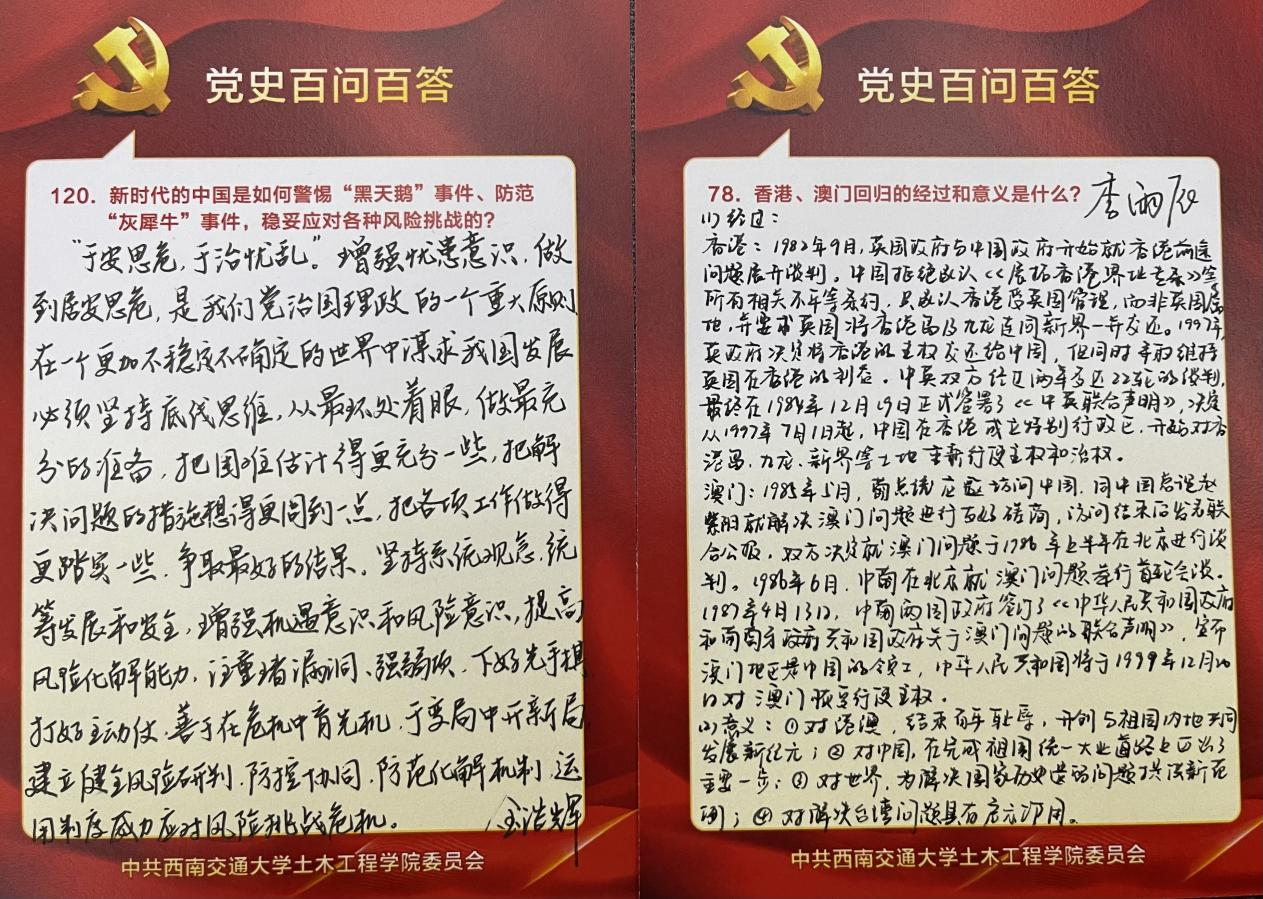 党史百问百答
120. 新时代的中国是如何警惕“黑天鹅”事件、防范
“灰犀牛”事件，稳妥应对各种风险挑战的？
“于安思危，于治忧乱。”增强忧患意识，做
到居安思危，是我们党治国理政的一个重大原则
在一个更加不稳定不确定的世界中谋求我国发展
必须坚持底线思维，从最坏处着眼，做最充
分的准备，把困难估计得更充分一些，把解
决问题的措施想得更周到一点，把各项工作做得
更踏实一些，争取最好的结果。坚持系统观念，统
筹发展和安全，增强机遇意识和风险意识，提高
风险化解能力，注重堵漏洞、强弱项，下好先手棋
打好主动仗，善于在危机中育先机，于变局中开新局，
建立健全风险研判、防控协同、防范化解机制，运
用制度威力应对风险挑战危机。
金浩辉
中共西南交通大学土木工程学院委员会
党史百问百答
78. 香港、澳门回归的经过和意义是什么？
李雨辰
(1)经过：
香港：1982年9月，英国政府与中国政府开始就香港前途
问题展开谈判。中国拒绝承认《展拓香港界址专条》等
所有相关不平等条约，只承认香港受英国管理，而非英国属
地，并要求英国将香港岛及九龙连同新界一并交还。1997年，
英政府决定将香港的主权交还给中国，但同时争取维持
英国在香港的利益。中英双方经过两年多达22轮的谈判，
最终在1984年12月19日正式签署了《中英联合声明》，决定
从1997年7月1日起，中国在香港成立特别行政区，开始对香
港岛、九龙、新界等土地重新行使主权和治权。
澳门：1985年5月，葡总统应邀访问中国，同中国总理赵
紫阳就解决澳门问题进行友好磋商，访问结束后发表联
合公报，双方决定就澳门问题于1986年上半年在北京进行谈
判。1986年6月，中葡在北京就澳门问题举行首轮会谈。
1987年4月13日，中葡两国政府签订了《中华人民共和国政府
和葡萄牙政府共和国政府关于澳门问题的联合声明》，宣布
澳门地区是中国的领土，中华人民共和国将于1999年12月20
日对澳门恢复行使主权。
(2)意义：①对港澳，结束百年耻辱，开创与祖国内地共同
发展新纪元；②对中国，在完成祖国统一大业道路上迈出了
重要一步；③对世界，为解决国家历史遗留问题提供新范
例；④对解决台湾问题具有启示作用。
中共西南交通大学土木工程学院委员会